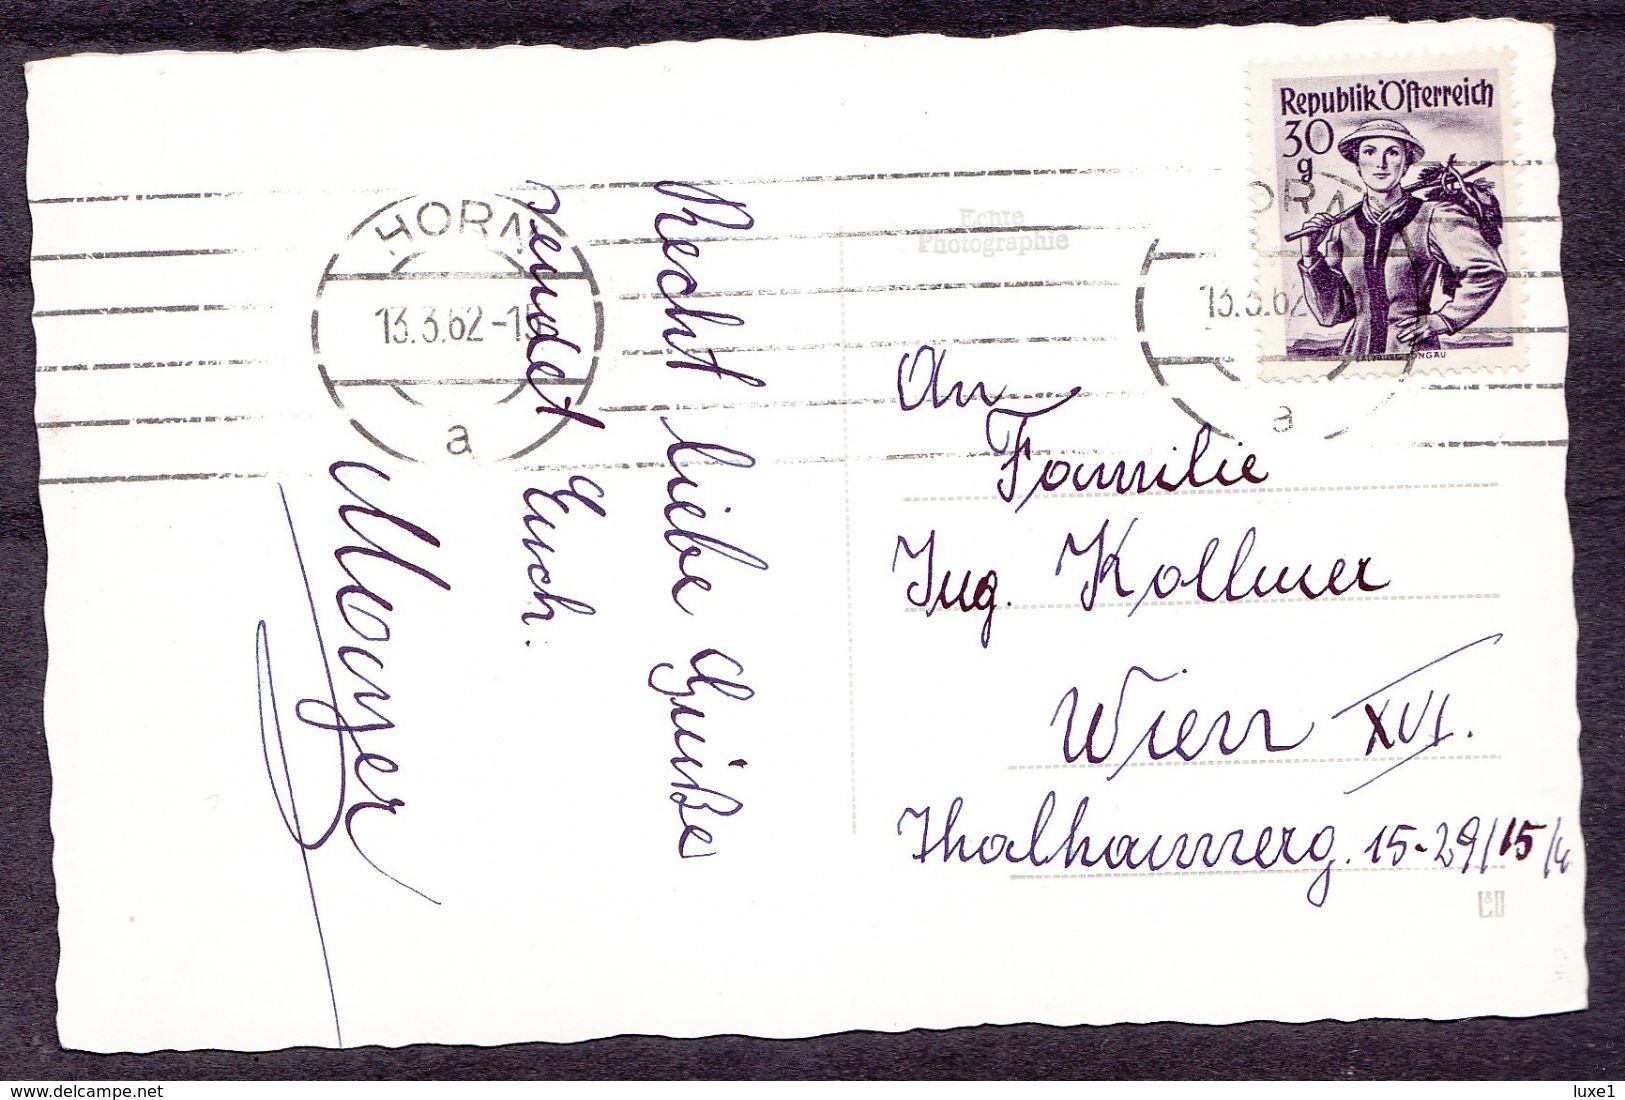 Republik Österreich
30
g
SALZBURG, PONGAU
HORN
13.3.62-15
a
HORN
13.3.62
a
Echte
Photographie
Recht liebe Grüße
sendet Euch:
An
Familie
Ing. Kollmer
Wien XVI.
Thalhammerg. 15-29/15/4
L&D
www.delcampe.net
luxe1